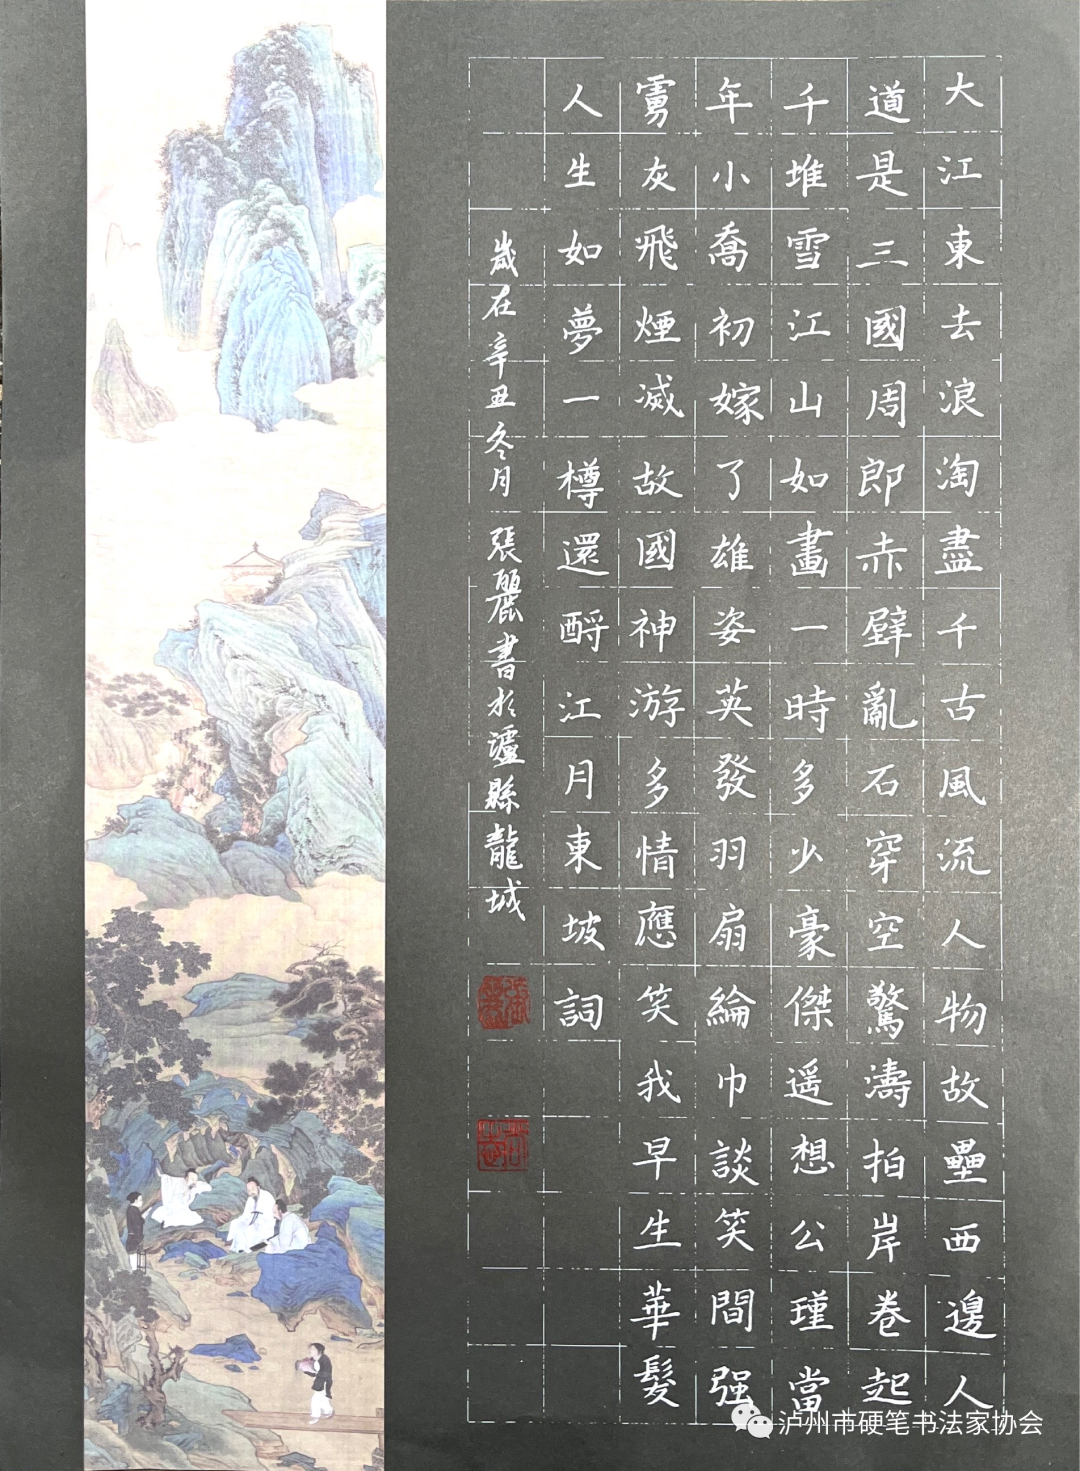 大江東去浪淘盡千古風流人物故壘西邊人
道是三國周郎赤壁亂石穿空驚濤拍岸卷起
千堆雪江山如畫一時多少豪傑遥想公瑾當
年小喬初嫁了雄姿英發羽扇綸巾談笑間强
虜灰飛煙滅故國神游多情應笑我早生華髮
人生如夢一樽還酹江月東坡詞
歲在辛丑冬月張麗書於瀘縣龍城
泸州市硬笔书法家协会